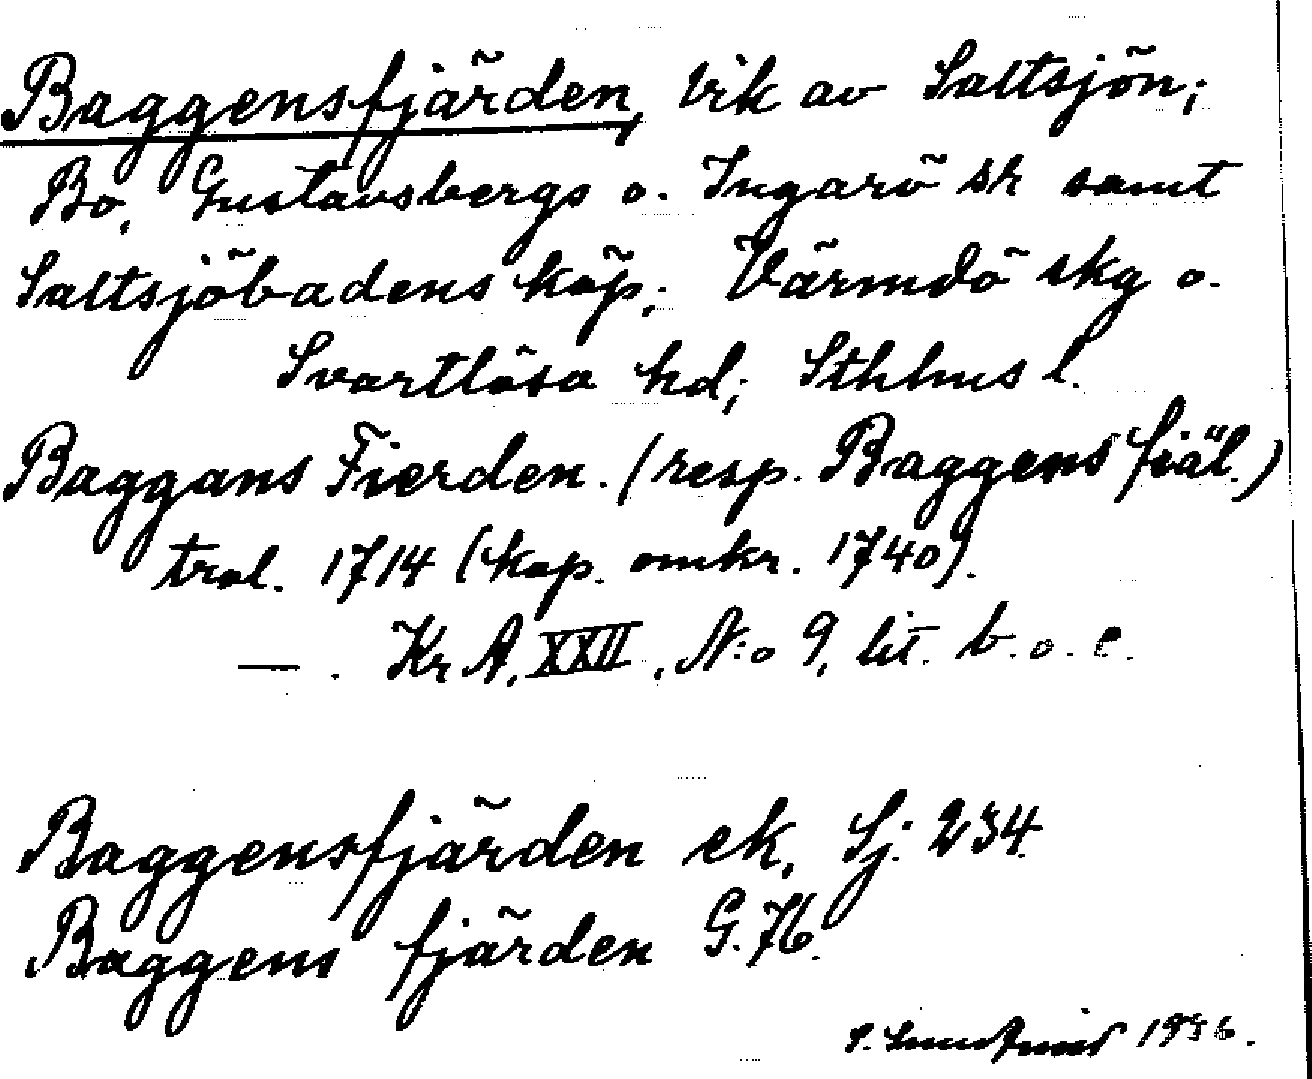 Baggensfjärden, vik av Saltsjön;
Bo, Gustavsbergs o. Ingarö sk samt
Saltsjöbadens köp; Värmdö skg o.
Svartlösa hd; Sthlms l.
Baggans Fierden. (resp. Baggens fiäl.)
tral. 1714 (kop. omkr. 1740).
—. Kr A, XXII, N:o 9, lit. b. o. c.
Baggensfjärden ek, Sj. 234
Baggens fjärden G.76.
1936.